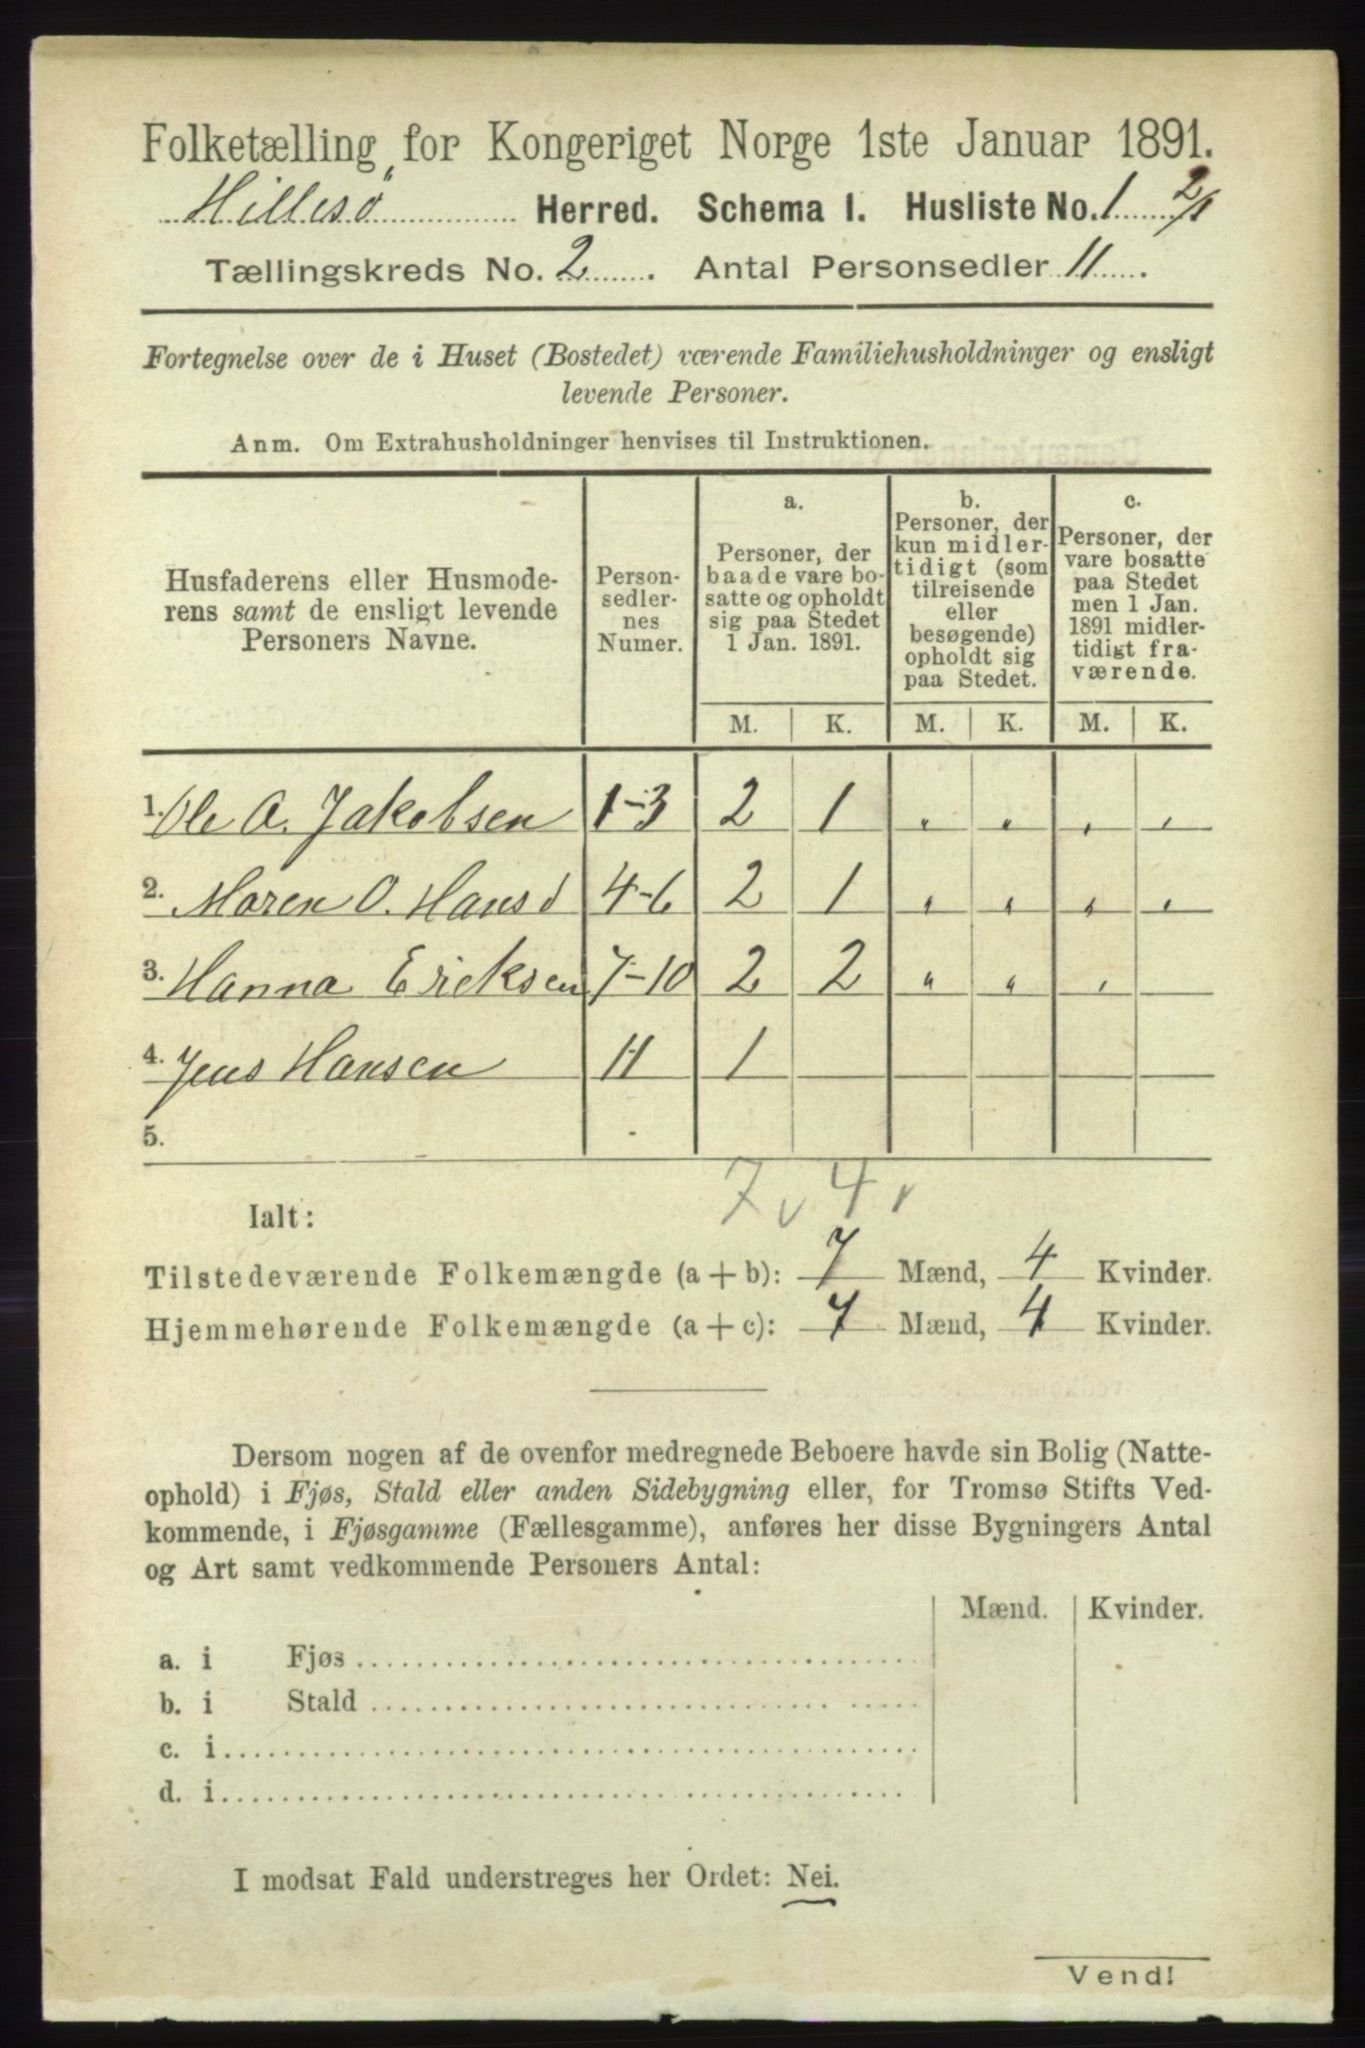 Folketælling for Kongeriget Norge 1ste Januar 1891.
Hillesö Herred. Schema 1. Husliste No. 1 2/1
Tællingskreds No. 2. Antal Personsedler 11.
Fortegnelse over de i Huset (Bostedet) værende Familiehusholdninger og ensligt
levende Personer.
Anm. Om Extrahusholdninger henvises til Instruktionen.
Husfaderens eller Husmode-
rens samt de ensligt levende
Personers Navne.
Person-
sedler-
nes
Numer.
a.
Personer, der
baade vare bo-
satte og opholdt
sig paa Stedet
1 Jan. 1891.
b.
Personer, der
kun midler-
tidigt (som
tilreisende
eller
besøgende)
opholdt sig
paa Stedet.
c.
Personer, der
vare bosatte
paa Stedet
men 1 Jan.
1891 midler-
tidigt fra-
værende.
M. K. M. K. M. K.
1. Ole A. Jakobsen 1-3 2 1 " " " "
2. Maren O. Hansd 4-6 2 1 " " " "
3. Hanna Ericksen 7-10 2 2 " " "
4. Jens Hansen 11 1
5.
7 4
Ialt:
Tilstedeværende Folkemængde (a + b): 7 Mænd, 4 Kvinder.
Hjemmehørende Folkemængde (a + c): 7 Mænd, 4 Kvinder.
Dersom nogen af de ovenfor medregnede Beboere havde sin Bolig (Natte-
ophold) i Fjøs, Stald eller anden Sidebygning eller, for Tromsø Stifts Ved-
kommende, i Fjøsgamme (Fællesgamme), anføres her disse Bygningers Antal
og Art samt vedkommende Personers Antal:
Mænd. Kvinder.
a. i Fjøs
b. i Stald
c. i
d. i
I modsat Fald understreges her Ordet: Nei.
Vend!